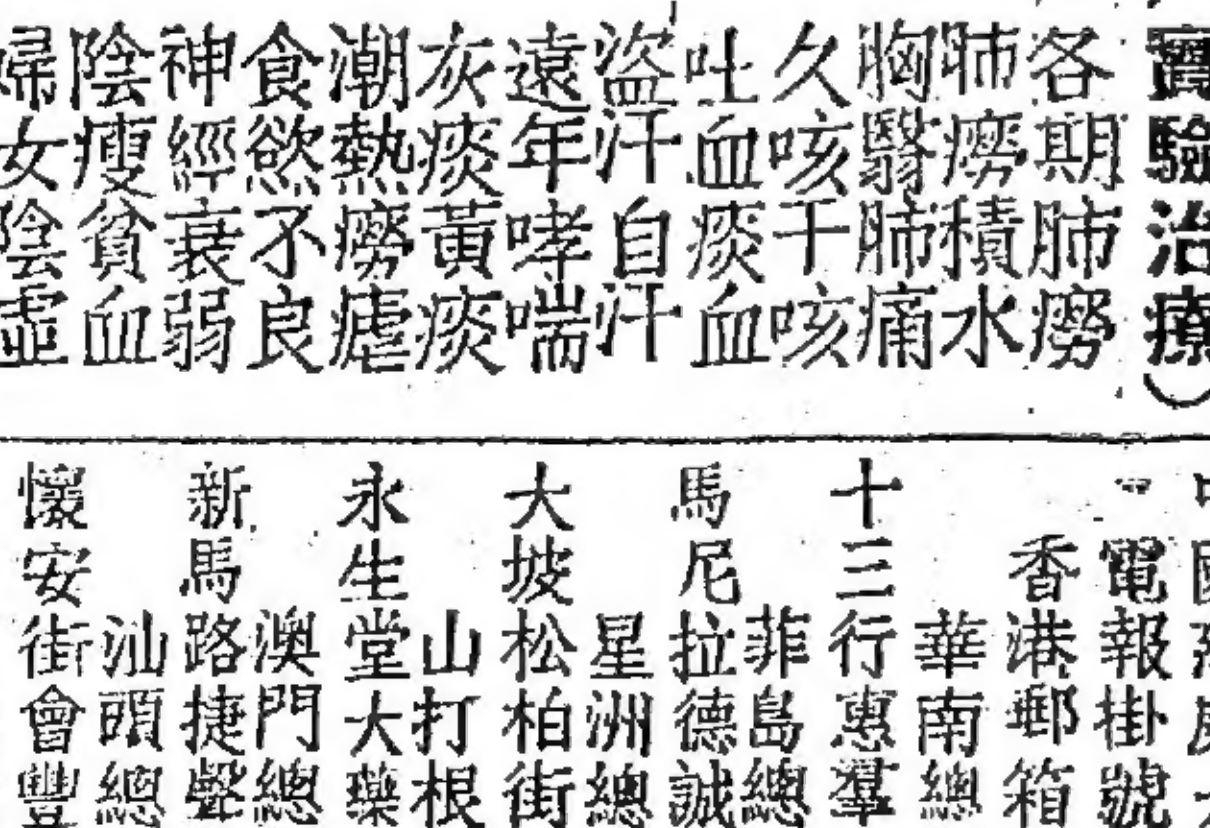 實驗治療）
各期肺癆
肺癆積水
胸翳肺痛
久咳干咳
吐血痰血
盜汗自汗
遠年哮喘
灰痰黃痰
潮熱癆瘧
食慾不良
神經衰弱
陰瘦貧血
婦女陰虛
電報掛號
香港郵箱
華南總
十三行惠羣
菲島總
馬尼拉德誠
星洲總
大坡松柏街
山打根
永生堂大藥
澳門總
新馬路捷聲
汕頭總
懷安街會豐